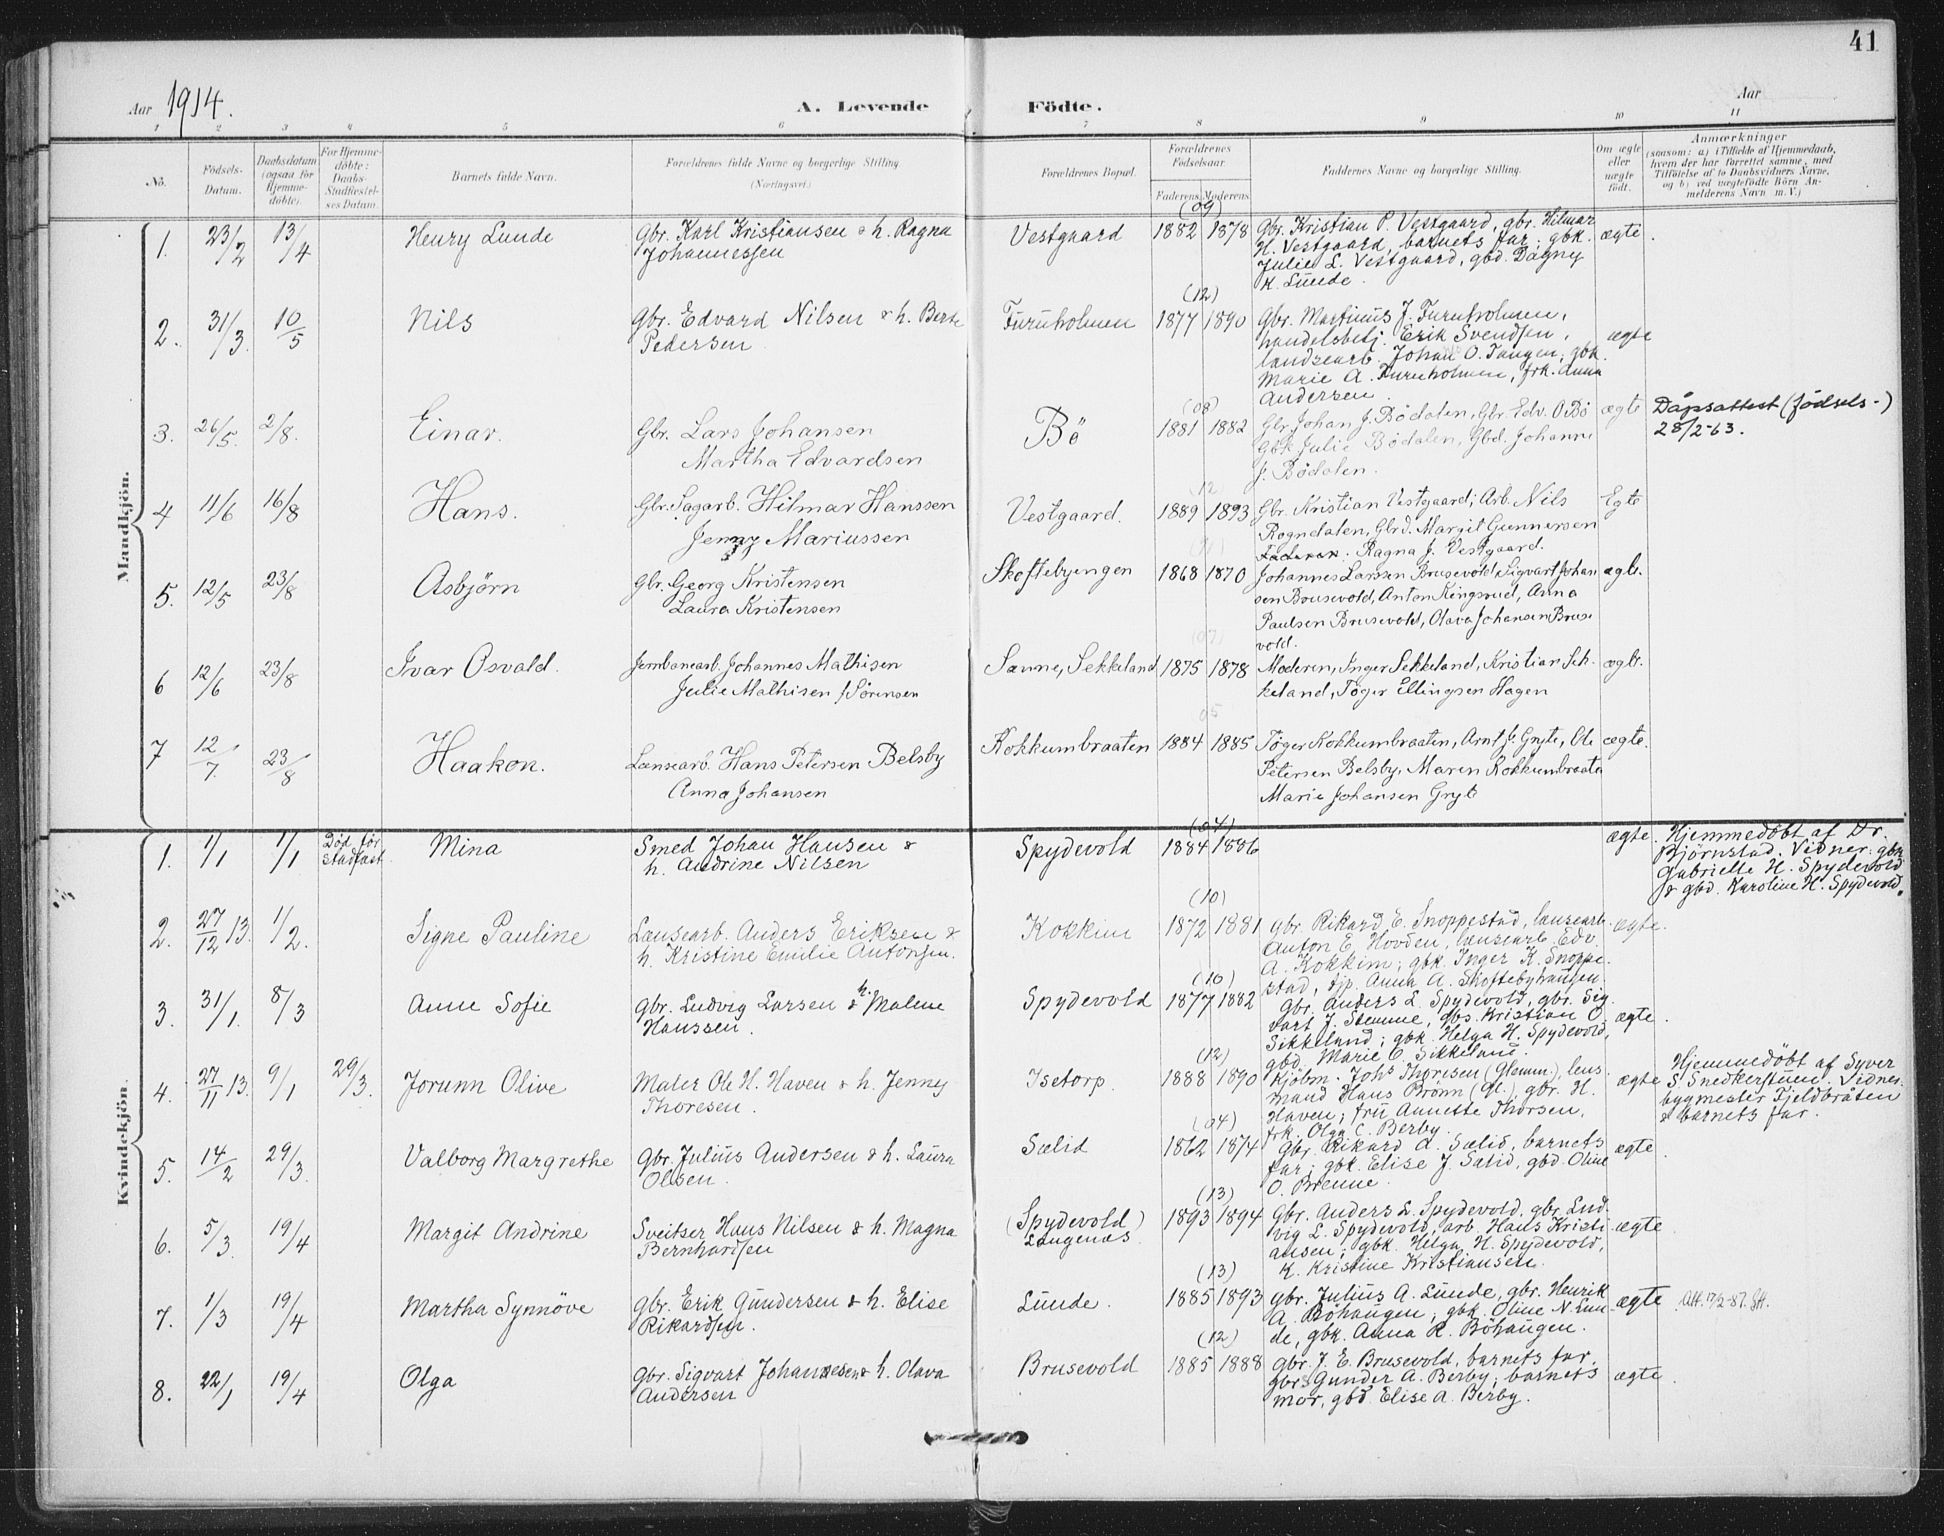 41
Aar 1914.
A. Levende Födte.
Aar
1 2 3 4 5 6 7 8 9 10 11
No.
Födsels-Datum.
Daabsdatum (ogsaa för Hjemmedöbte).
For Hjemmedöbte: Daabs-Stadfæstelses Datum.
Barnets fulde Navn.
Forældrenes fulde Navne og borgerlige Stilling (Næringsvei.)
Forældrenes Bopæl.
Forældrenes Födselsaar.
Faderens Moderens
Faddernes Navne og borgerlige Stilling.
Om ægte eller uægte födt.
Anmærkninger
(saasom: a) i Tilfælde af Hjemmedaab,
hvem der har forrettet samme, med
Tilföielse af to Daabsvidners Navne,
og b) ved uægtefödte Börn An-
melderens Navn m. V.)
Mandkjön.
1. 23/2 13/4 Henry Lunde Gbr. Karl Kristiansen & h. Ragna Vestgaard (09) 1882 1878 Gbr. Kristian P. Vestgaard, gbr. Hilmar ægte.
Johannessen H. Vestgaard, barnets far; gbk.
Julie L. Vestgaard, gbd. Dagny
K. Lunde.
2. 31/3. 10/5 Nils Gbr. Edvard Nilsen & h. Berte Furuholmen (12) 1877 1890 Gbr. Martinus J. Furuholmen, ægte
Pedersen handelsbetj. Erik Svendsen,
landsearb. Johan O. Tangen; gbk.
Marie A. Furuholmen, frk. Anna
Andersen.
3. 26/5. 2/8. Einar. Gbr. Lars Johansen Bö (08) 1881 1882 Gbr Johan J. Bödalen, Gbr. Edv. O. Bö ægte Dåpsattest (fødsels-)
Martha Edvardsen Gbk Julie Bödalen, Gbd. Johanne 28/2-63.
J. Bödalen.
4 11/6 16/8 Hans. Gbr. Sagarb. Hilmar Hanssen Vestgaard. (12 1889 1893 Gbr. Kristian Vestgaard; Arb. Nils Egte
Jenny Mariussen Rogndalen, Gbrd. Margit Gunnersen
Faderen. Ragna J. Vestgaard.
5. 12/5 23/8 Asbjörn Gbr. Georg Kristensen Skoftebyengen 1868 1870 Johannes Larssen Brusevold, Sigvart Johan ægte.
Laura Kristensen sen Brusevold, Anton Kingsrud, Anna
Paulsen Brusevold, Olava Johansen Bruse
vold.
6 12/6 23/8 Ivar Osvald. Jernbanearb. Johannes Mathisen Sanne, Sekkeland (07) 1875 1878 Moderen, Inger Sekkeland, Kristian Sek- ægte.
Julie Mathisen f. Sörensen keland, Töger Ellingsen Hagen
7 12/7. 23/8 Haakon. Lænsearb. Hans Petersen Belsby Kokkumbraaten 05 1884 1885 Töger Kokkumbraaten, Arnt J. Gryte, Ole ægte.
Anna Johansen Petersen Belsby, Maren Kokkumbraate
Marie Johansen Gryte
Kvindekjön.
1. 1/1 1/1 Død før stadfæst. Mina Smed Johan Hansen & Spydevold (04) 1884 1886 ægte. Hjemmedöbt af Dr.
h. Andrine Nilsen Björnstad. Vidner: gbk
Gabrielle H. Spydevold
& gbd. Karoline H. Spydevold.
2. 27/12 13. 1/2. Signe Pauline Lænsearb. Anders Eriksen & Kokkim (10) 1872 1881 gbr. Rikard E. Snoppestad, lænsearb. ægte.
h. Kristine Emilie Antonsen. Anton E. Hovden, lænsearb. Edv.
A. Kokkim; gbk. Inger K. Snoppe-
stad, tjp. Anna A. Skoftebyhaugen.
3. 31/1. 8/3 Anne Sofie Gbr. Ludvig Larsen & h. Malene Spydevold (10) 1877 1882 Gbr. Anders L. Spydevold, gbr. Sig- ægte.
Hanssen. vart J. Stemme, gbs. Kristian O.
Sikkeland; gbk. Helga H. Spydevold,
gbd. Marie O. Sikkeland.
4. 27/11 13. 9/1 29/3. Jorunn Olive Maler Ole H. Haven & h. Jenny Isetorp. (12) 1888 1890 Kjöbm. Johs Thoresen (Glemm.), lens- ægte Hjemmedöbt af Syver
Thoresen. mand Hans Brönn (Gl.), gbr. H. S. Snedkerstuen. Vidner:
Haven; fru Annette Thorsen, bygmester Fjeldbråten
frk. Olga C. Berby. & barnets far.
5. 14/2 29/3. Valborg Margrethe Gbr. Julius Andersen & h. Laura Sælid (04) 1862 1874 Gbr. Rikard A. Sælid, barnets ægte.
Olsen. far; gbk. Elise J. Sælid, gbd. Oline
O. Brenne.
6. 5/3. 19/4 Margit Andrine Sveitser Hans Nilsen & h. Magna (Spydevold) (13) 1893 1894 Gbr. Anders L. Spydevold, gbr. Lud- ægte.
Bernhardsen Langenæs. vig L. Spydevold, arb. Hans Kristi-
ansen; gbk. Helga H. Spydevold,
K. Kristine Kristiansen.
7. 1/3 19/4 Martha Synnöve Gbr. Erik Gundersen & h. Elise Lunde. (13) 1885 1893 gbr. Julius A. Lunde, gbr. Henrik ægte
Rikardsen. A. Böhaugen; gbk. Oline N. Lun-
de, gbk. Anna R. Böhaugen.
8. 22/1 19/4 Olga Gbr. Sigvart Johannesen & h. Olava Brusevold (12) 1885 1888 gbr. J. E. Brusevold, barnets far, ægte.
Andersen gbrs Gunder A. Berby; barnets
mor, gbd Elise A. Berby.